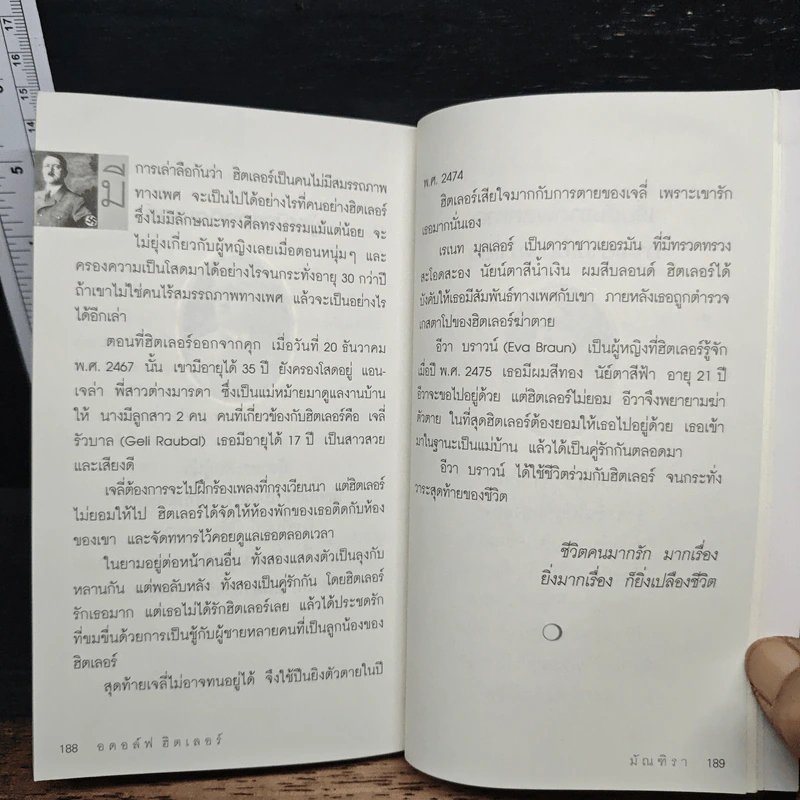 มีการเล่าลือกันว่า ฮิตเลอร์เป็นคนไม่มีสมรรถภาพ
ทางเพศ จะเป็นไปได้อย่างไรที่คนอย่างฮิตเลอร์
ซึ่งไม่มีลักษณะทรงศีลทรงธรรมแม้แต่น้อย จะ
ไม่ยุ่งเกี่ยวกับผู้หญิงเลยเมื่อตอนหนุ่มๆ และ
ครองความเป็นโสดมาได้อย่างไรจนกระทั่งอายุ 30 กว่าปี
ถ้าเขาไม่ใช่คนไร้สมรรถภาพทางเพศ แล้วจะเป็นอย่างไร
ได้อีกเล่า
ตอนที่ฮิตเลอร์ออกจากคุก เมื่อวันที่ 20 ธันวาคม
พ.ศ. 2467 นั้น เขามีอายุได้ 35 ปี ยังครองโสดอยู่ แอน-
เจล่า พี่สาวต่างมารดา ซึ่งเป็นแม่หม้ายมาดูแลงานบ้าน
ให้ นางมีลูกสาว 2 คน คนที่เกี่ยวข้องกับฮิตเลอร์คือ เจลี่
รัวบาล (Geli Raubal) เธอมีอายุได้ 17 ปี เป็นสาวสวย
และเสียงดี
เจลี่ต้องการจะไปฝึกร้องเพลงที่กรุงเวียนนา แต่ฮิตเลอร์
ไม่ยอมให้ไป ฮิตเลอร์ได้จัดให้ห้องพักของเธอติดกับห้อง
ของเขา และจัดทหารไว้คอยดูแลเธอตลอดเวลา
ในยามอยู่ต่อหน้าคนอื่น ทั้งสองแสดงตัวเป็นลุงกับ
หลานกัน แต่พอลับหลัง ทั้งสองเป็นคู่รักกัน โดยฮิตเลอร์
รักเธอมาก แต่เธอไม่ได้รักฮิตเลอร์เลย แล้วได้ประชดรัก
ที่ขมขื่นด้วยการเป็นชู้กับผู้ชายหลายคนที่เป็นลูกน้องของ
ฮิตเลอร์
สุดท้ายเจลี่ไม่อาจทนอยู่ได้ จึงใช้ปืนยิงตัวตายในปี
188 อดอล์ฟ ฮิตเลอร์
พ.ศ. 2474
ฮิตเลอร์เสียใจมากกับการตายของเจลี่ เพราะเขารัก
เธอมากนั่นเอง
เรเนท มุลเลอร์ เป็นดาราชาวเยอรมัน ที่มีทรวดทรวง
สะโอดสะอง นัยน์ตาสีน้ำเงิน ผมสีบลอนด์ ฮิตเลอร์ได้
บังคับให้เธอมีสัมพันธ์ทางเพศกับเขา ภายหลังเธอถูกตำรวจ
เกสตาโปของฮิตเลอร์ฆ่าตาย
อีวา บราวน์ (Eva Braun) เป็นผู้หญิงที่ฮิตเลอร์รู้จัก
เมื่อปี พ.ศ. 2475 เธอมีผมสีทอง นัย์ตาสีฟ้า อายุ 21 ปี
อีวาจะขอไปอยู่ด้วย แต่ฮิตเลอร์ไม่ยอม อีวาจึงพยายามฆ่า
ตัวตาย ในที่สุดฮิตเลอร์ต้องยอมให้เธอไปอยู่ด้วย เธอเข้า
มาในฐานะเป็นแม่บ้าน แล้วได้เป็นคู่รักกันตลอดมา
อีวา บราวน์ ได้ใช้ชีวิตร่วมกับฮิตเลอร์ จนกระทั่ง
วาระสุดท้ายของชีวิต
ชีวิตคนมากรัก มากเรื่อง
ยิ่งมากเรื่อง ก็ยิ่งเปลืองชีวิต
มัณฑิรา 189
15
16
17
5